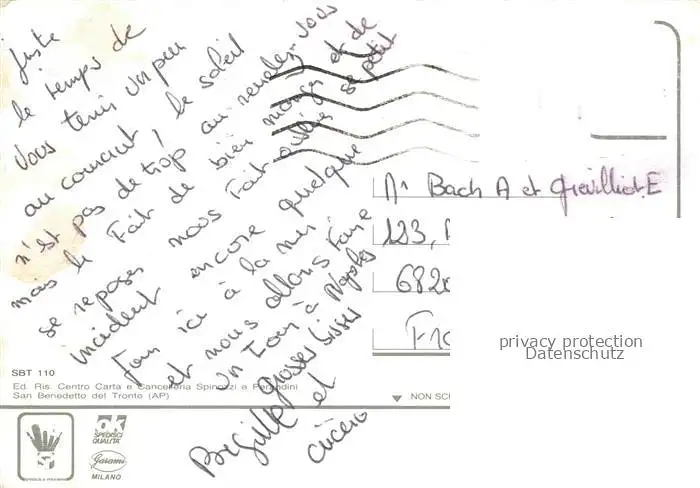 Juste
le temps de
vous tenir un peu
au courant ! le soleil
n'est pas de trop au rendez-vous
mais le fait de bien manger et de
se reposer nous fait oublier se petit
incident encore quelque
jours ici à la mer
et nous allons faire
un tour à Naples
grosses bises
Brigitte et
cicero
Mr Bach A et Grevilliot.E
123,
682
Fra
privacy protection
Datenschutz
SBT 110
Ed. Ris. Centro Carta e Cancelleria Spinozzi e
San Benedetto del Tronto (AP)
NON SC
ok
SPEDISCI
QUALITA'
Garami
MILANO